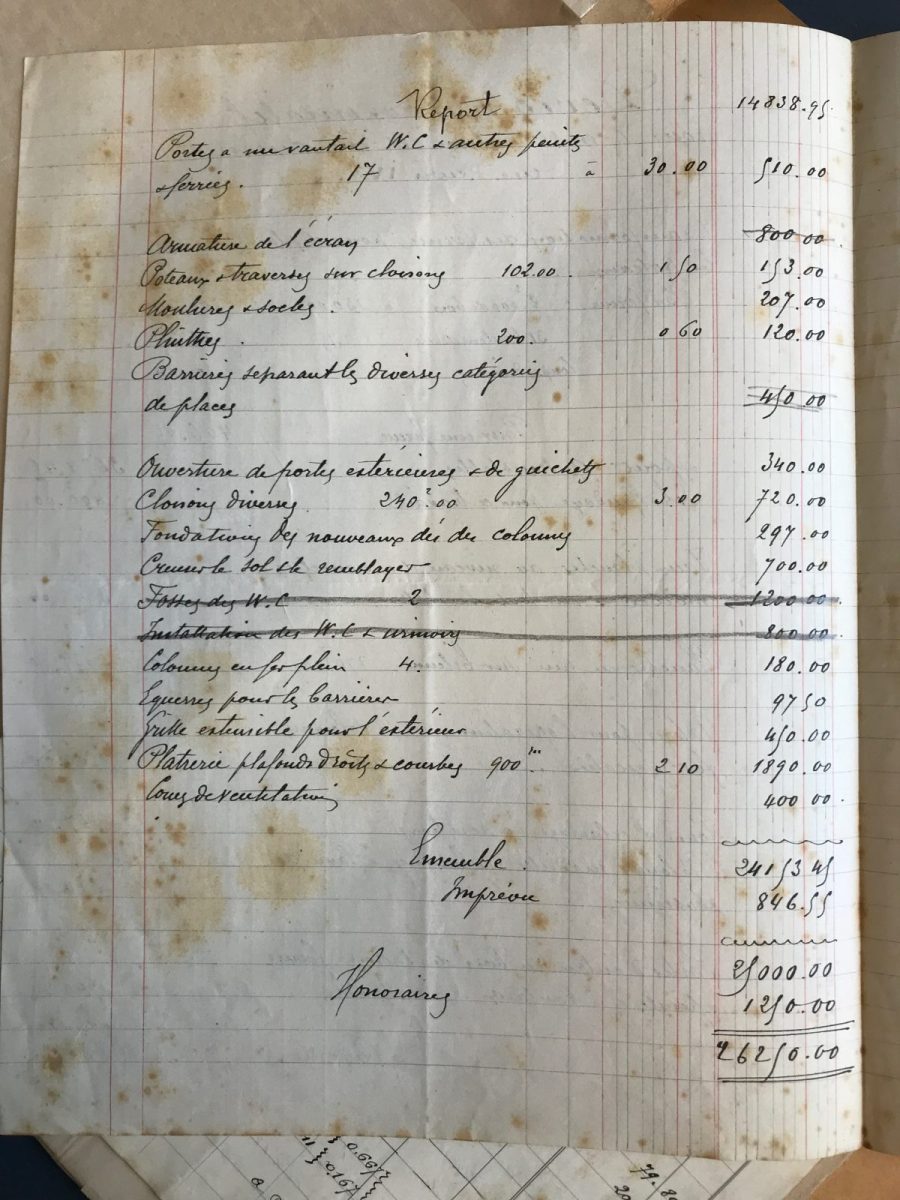 Report 14838.95
Portes a un vantail W.C & autres peintes
& ferrées. 17 à 30.00 510.00
Armature de l'écran 800 00
Poteaux & traverses sur cloisons 102.00 1 50 153.00
Moulures & socles. 207.00
Plinthes. 200. 0 60 120.00
Barrières separant les diverses catégories
de places 450 00
Ouverture de portes extérieures & de guichets 340.00
Cloisons diverses 240² 00 3.00 720.00
Fondations des nouveaux dés des colonnes 297.00
Creuser le sol & le remblayer 700.00
Fosses des W.C 2 1200.00
Installation des W.C & urinoirs 800.00
Colonnes en fer plein 4. 180.00
Equerres pour les barrières 97 50
Grille extensible pour l'extérieur 450.00
Platrerie plafonds droits & courbes 900 2 10 1890.00
de ventilation 400 00
Ensemble 24153 45
Imprévu 846.55
25000.00
Honoraires 1250.00
26250.00
0.667
0.167